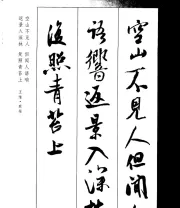 空山不見人但聞
語響返景入深
復照青苔上
空山不見人 但聞人語響
返景入深林 復照青苔上
王維・鹿柴